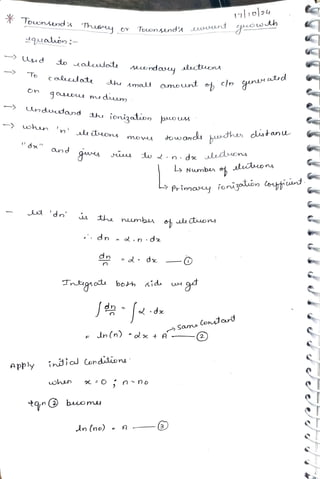 17/10/24
* Townsend's Theory or Townsend's current growth
equation :-
→ Used to calculate secondary electrons
→ To calculate the small amount of c/n generated
on gaseous medium.
→ Understand the ionization process
→ when 'n' electrons moves towards further distance
"dx" and gives rise to α.n.dx electrons
↳ Number of electrons
↳ Primary ionization Coefficient.
- let 'dn' is the number of electrons
∴ dn = α.n.dx
dn/n = α.dx — ①
Integrate both side we get
∫ dn/n = ∫ α.dx
= ln(n) = αx + A — ②
→ Some Constant
Apply initial Conditions
when x = 0 ; n = no
eqn ② becomes
ln (no) = A — ③